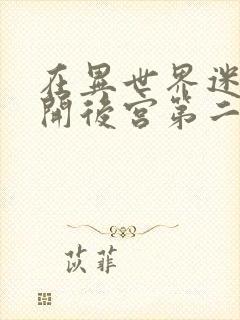 在異世界迷
開後宮第二
苡菲